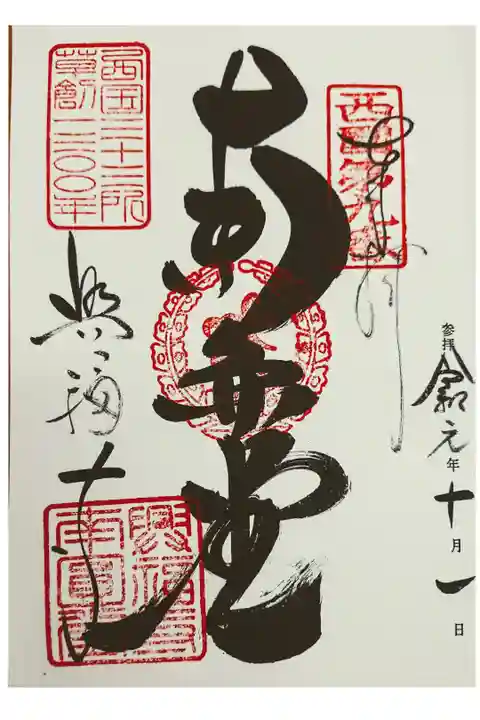 西国第九番
奉拝
参拝 令和元年十月一日
南無堂
西国三十三所
草創一三〇〇年
興福寺
興福寺
南円堂